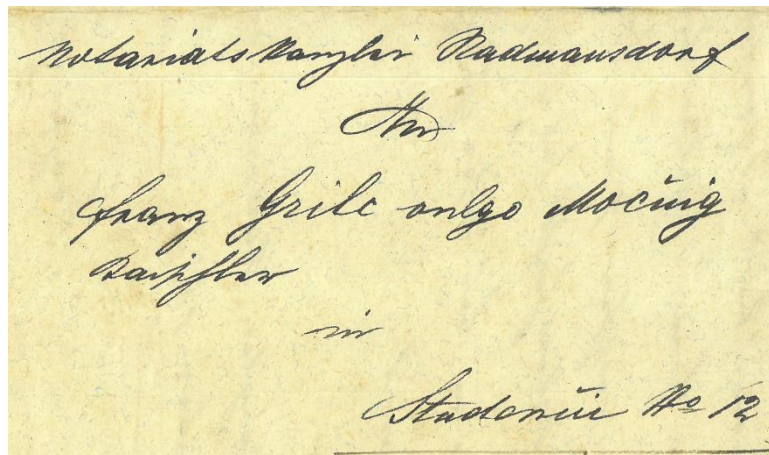 Notariatskanzlei Radmansdorf
An
Franz Grilc vulgo Močnig
Kaischler
in
Studenčic No 12